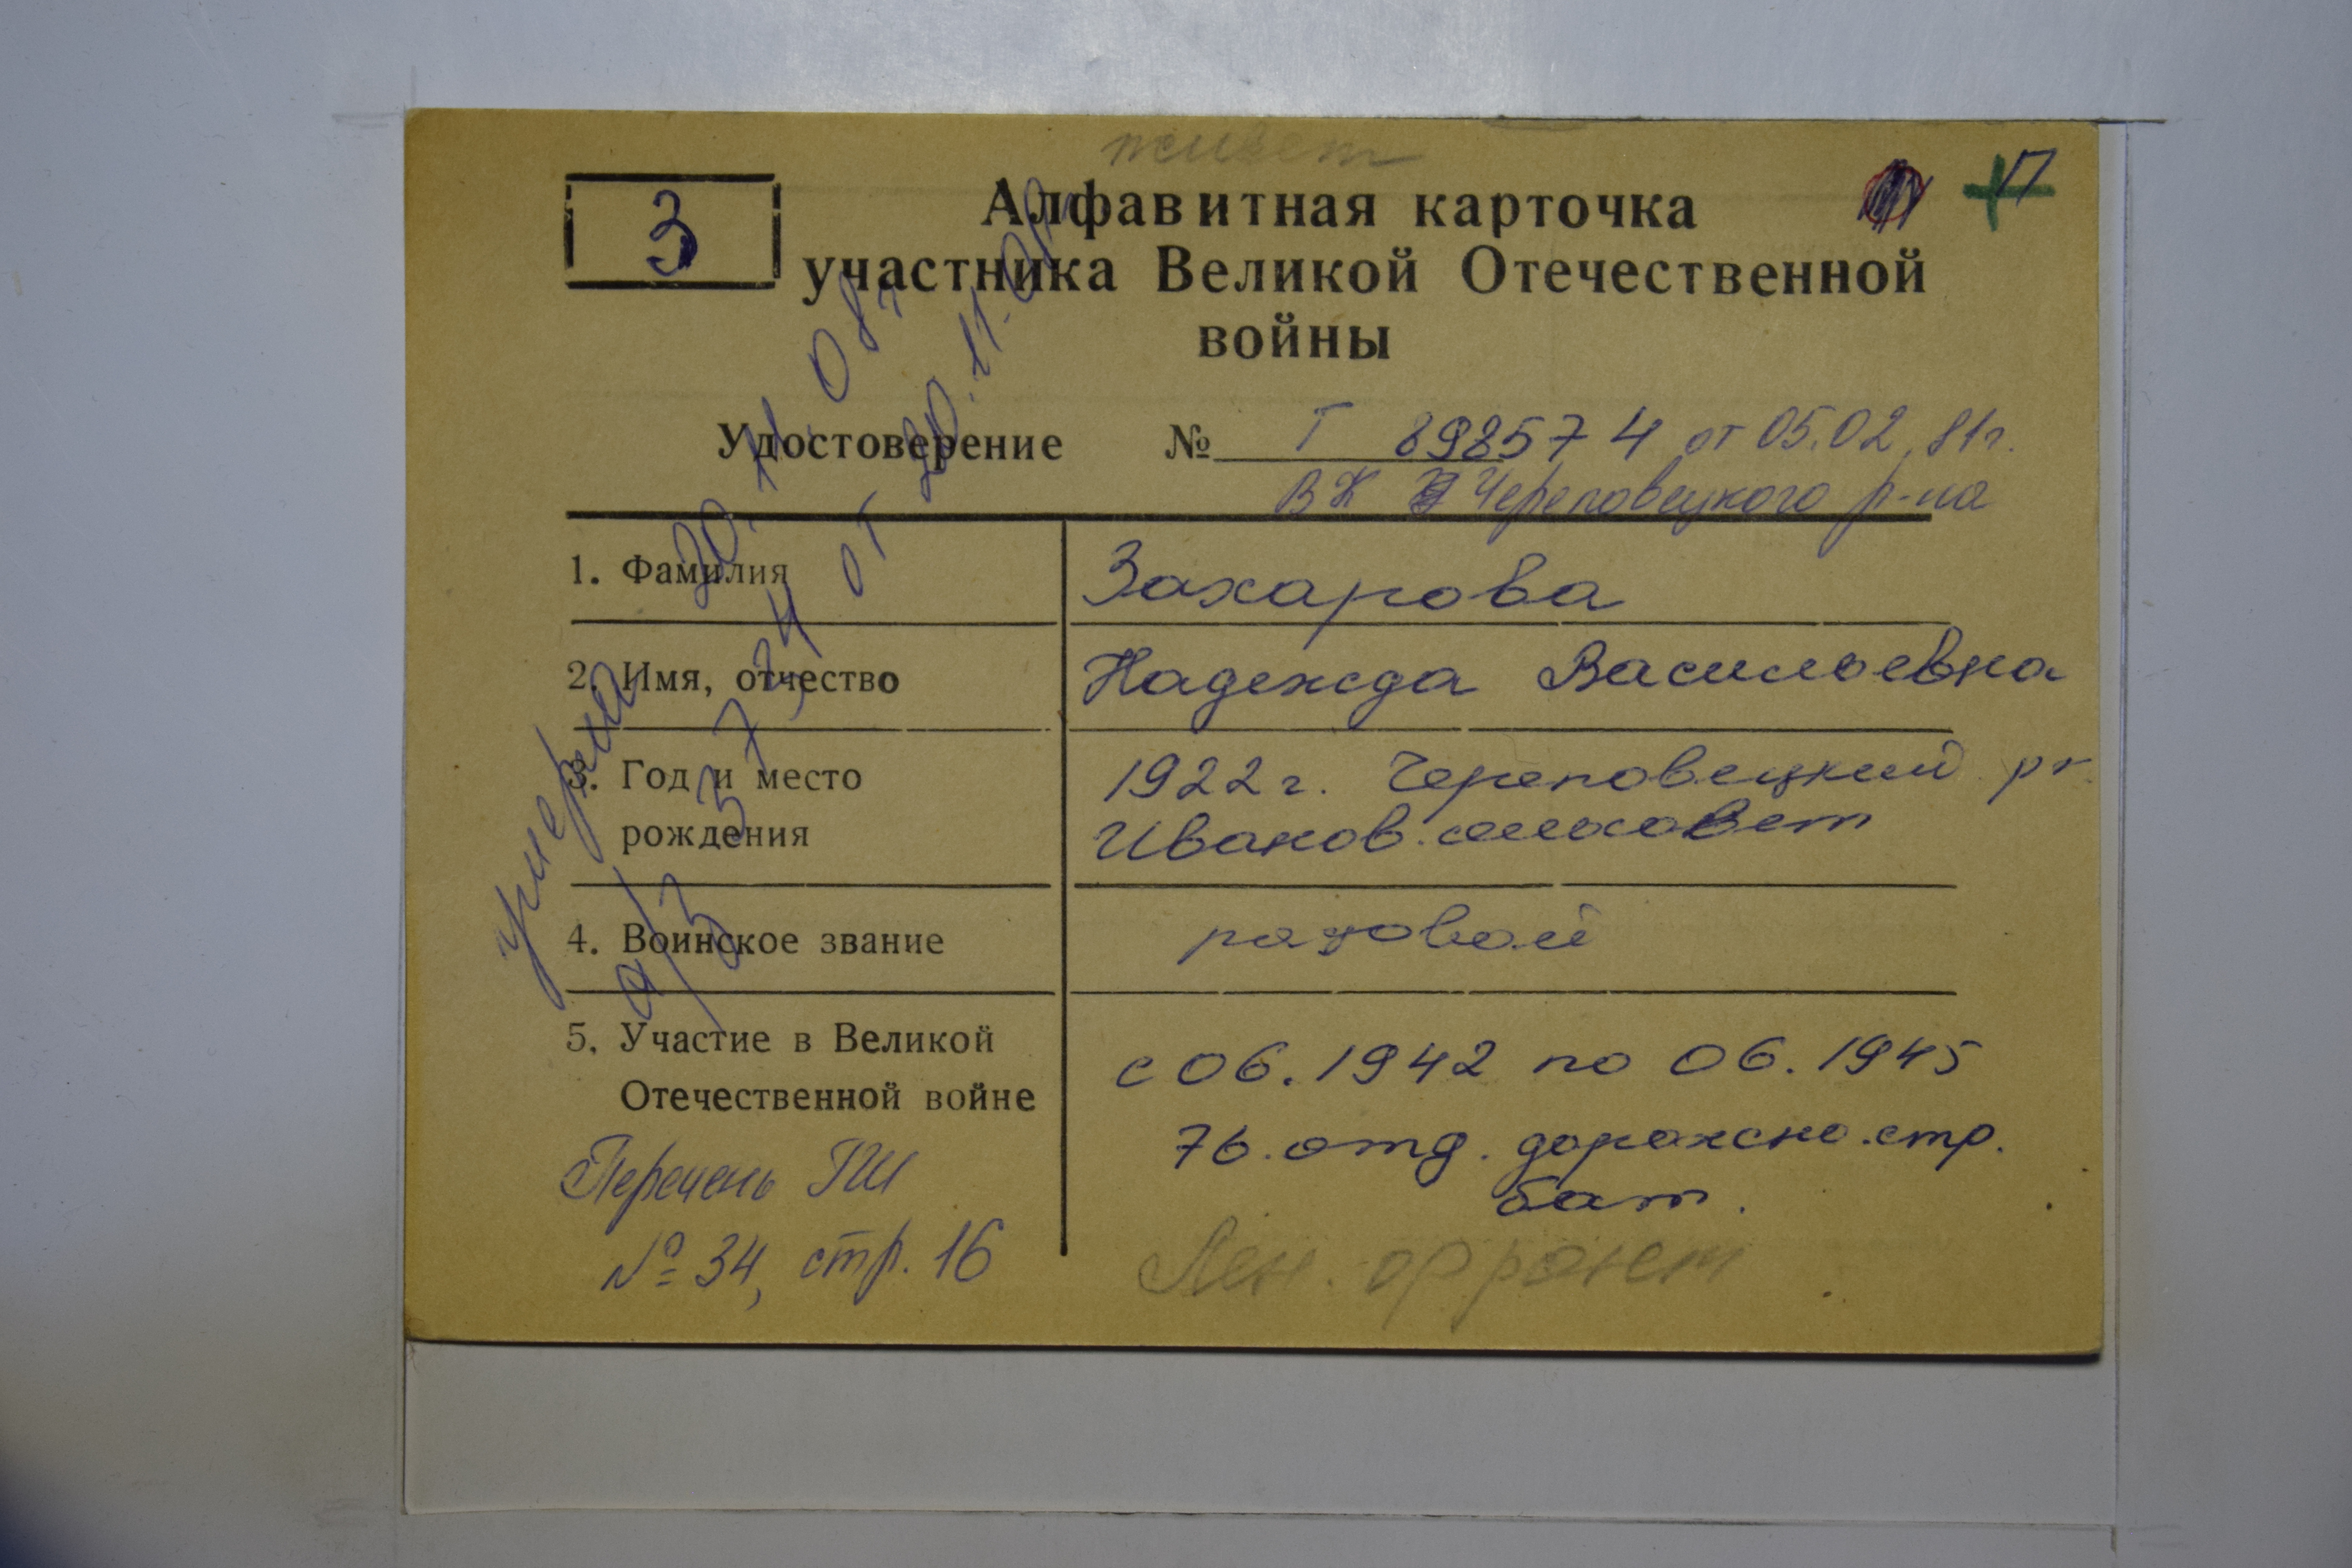 живет
3
П
Алфавитная карточка
участника Великой Отечественной
войны
Удостоверение № Г 898574 от 05.02.81г.
ВК Череповецкого р-на
1. Фамилия Захарова
2. Имя, отчество Надежда Васильевна
3. Год и место рождения 1922 г. Череповецкий р-н
Иванов. сельсовет
4. Воинское звание рядовой
5. Участие в Великой Отечественной войне с 06.1942 по 06.1945
76. отд. дорожно.стр.
бат.
Лен. фронт
Перечень ГШ
№ 34, стр. 16
умерла 20.11.08г
а/з 3724 от 20.11.08